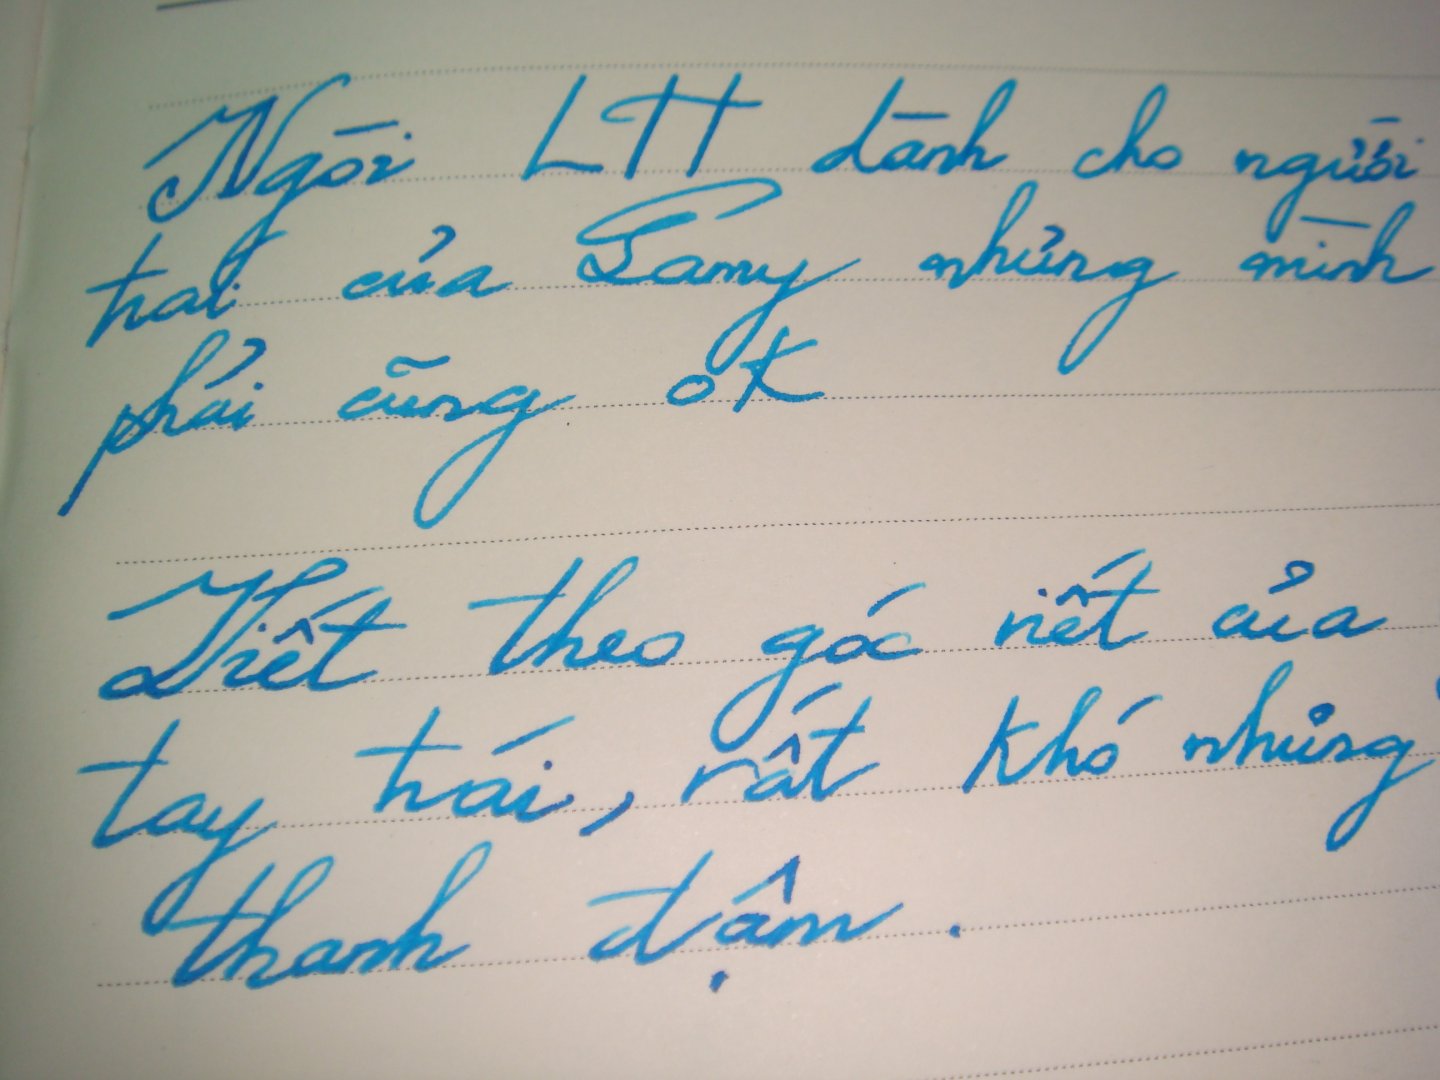 Ngòi LH dành cho người
trái của Lamy nhưng mình
phải cũng ok
Viết theo góc viết của
tay trái, rất khó nhưng
thanh đậm.